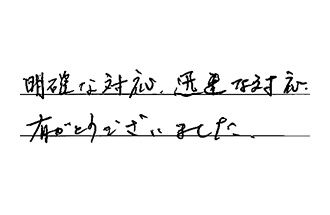 明確な対応、迅速な対応
有がとうございました。